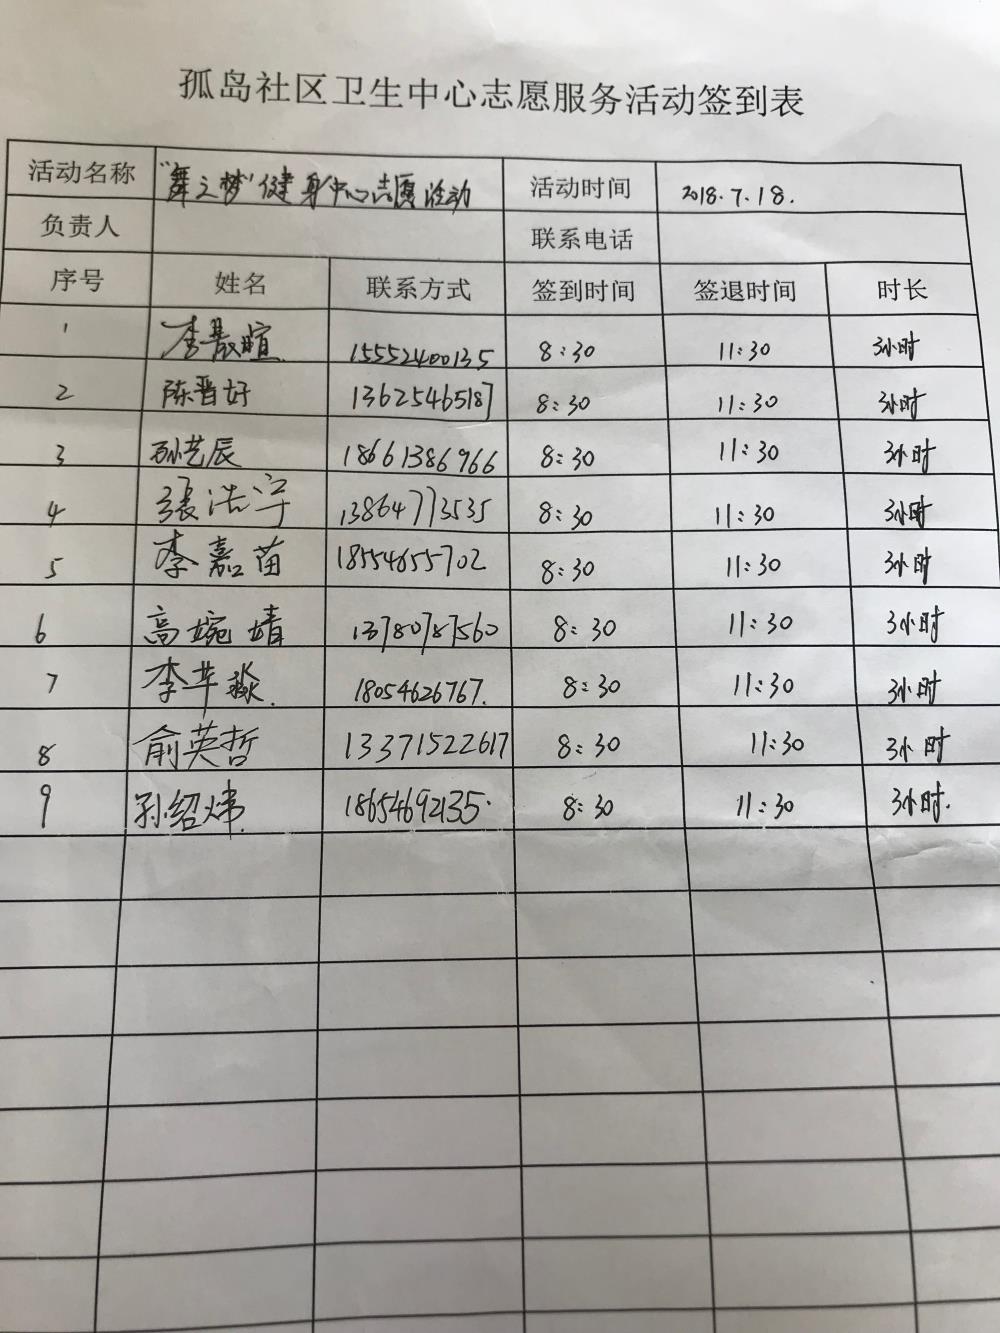 孤岛社区卫生中心志愿服务活动签到表
活动名称 "舞之梦"健身中心志愿活动 活动时间 2018.7.18.
负责人 联系电话
序号 姓名 联系方式 签到时间 签退时间 时长
1 李晨暄 15552400135 8:30 11:30 3小时
2 陈晋好 13625465187 8:30 11:30 3小时
3 孙艺辰 18661386966 8:30 11:30 3小时
4 張浩宇 13864773535 8:30 11:30 3小时
5 李嘉苗 18554655702 8:30 11:30 3小时
6 高婉婧 13780787560 8:30 11:30 3小时
7 李华淼 18054626767. 8:30 11:30 3小时
8 俞英哲 13371522617 8:30 11:30 3小时
9 孙绍炜 18654692135. 8:30 11:30 3小时.